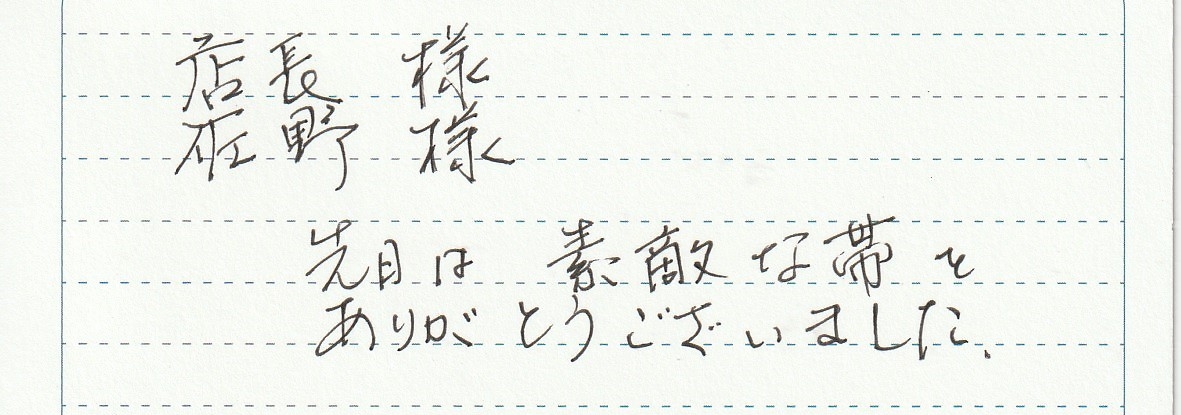 店長 様
佐野 様
先日は 素敵な帯を
ありがとうございました。